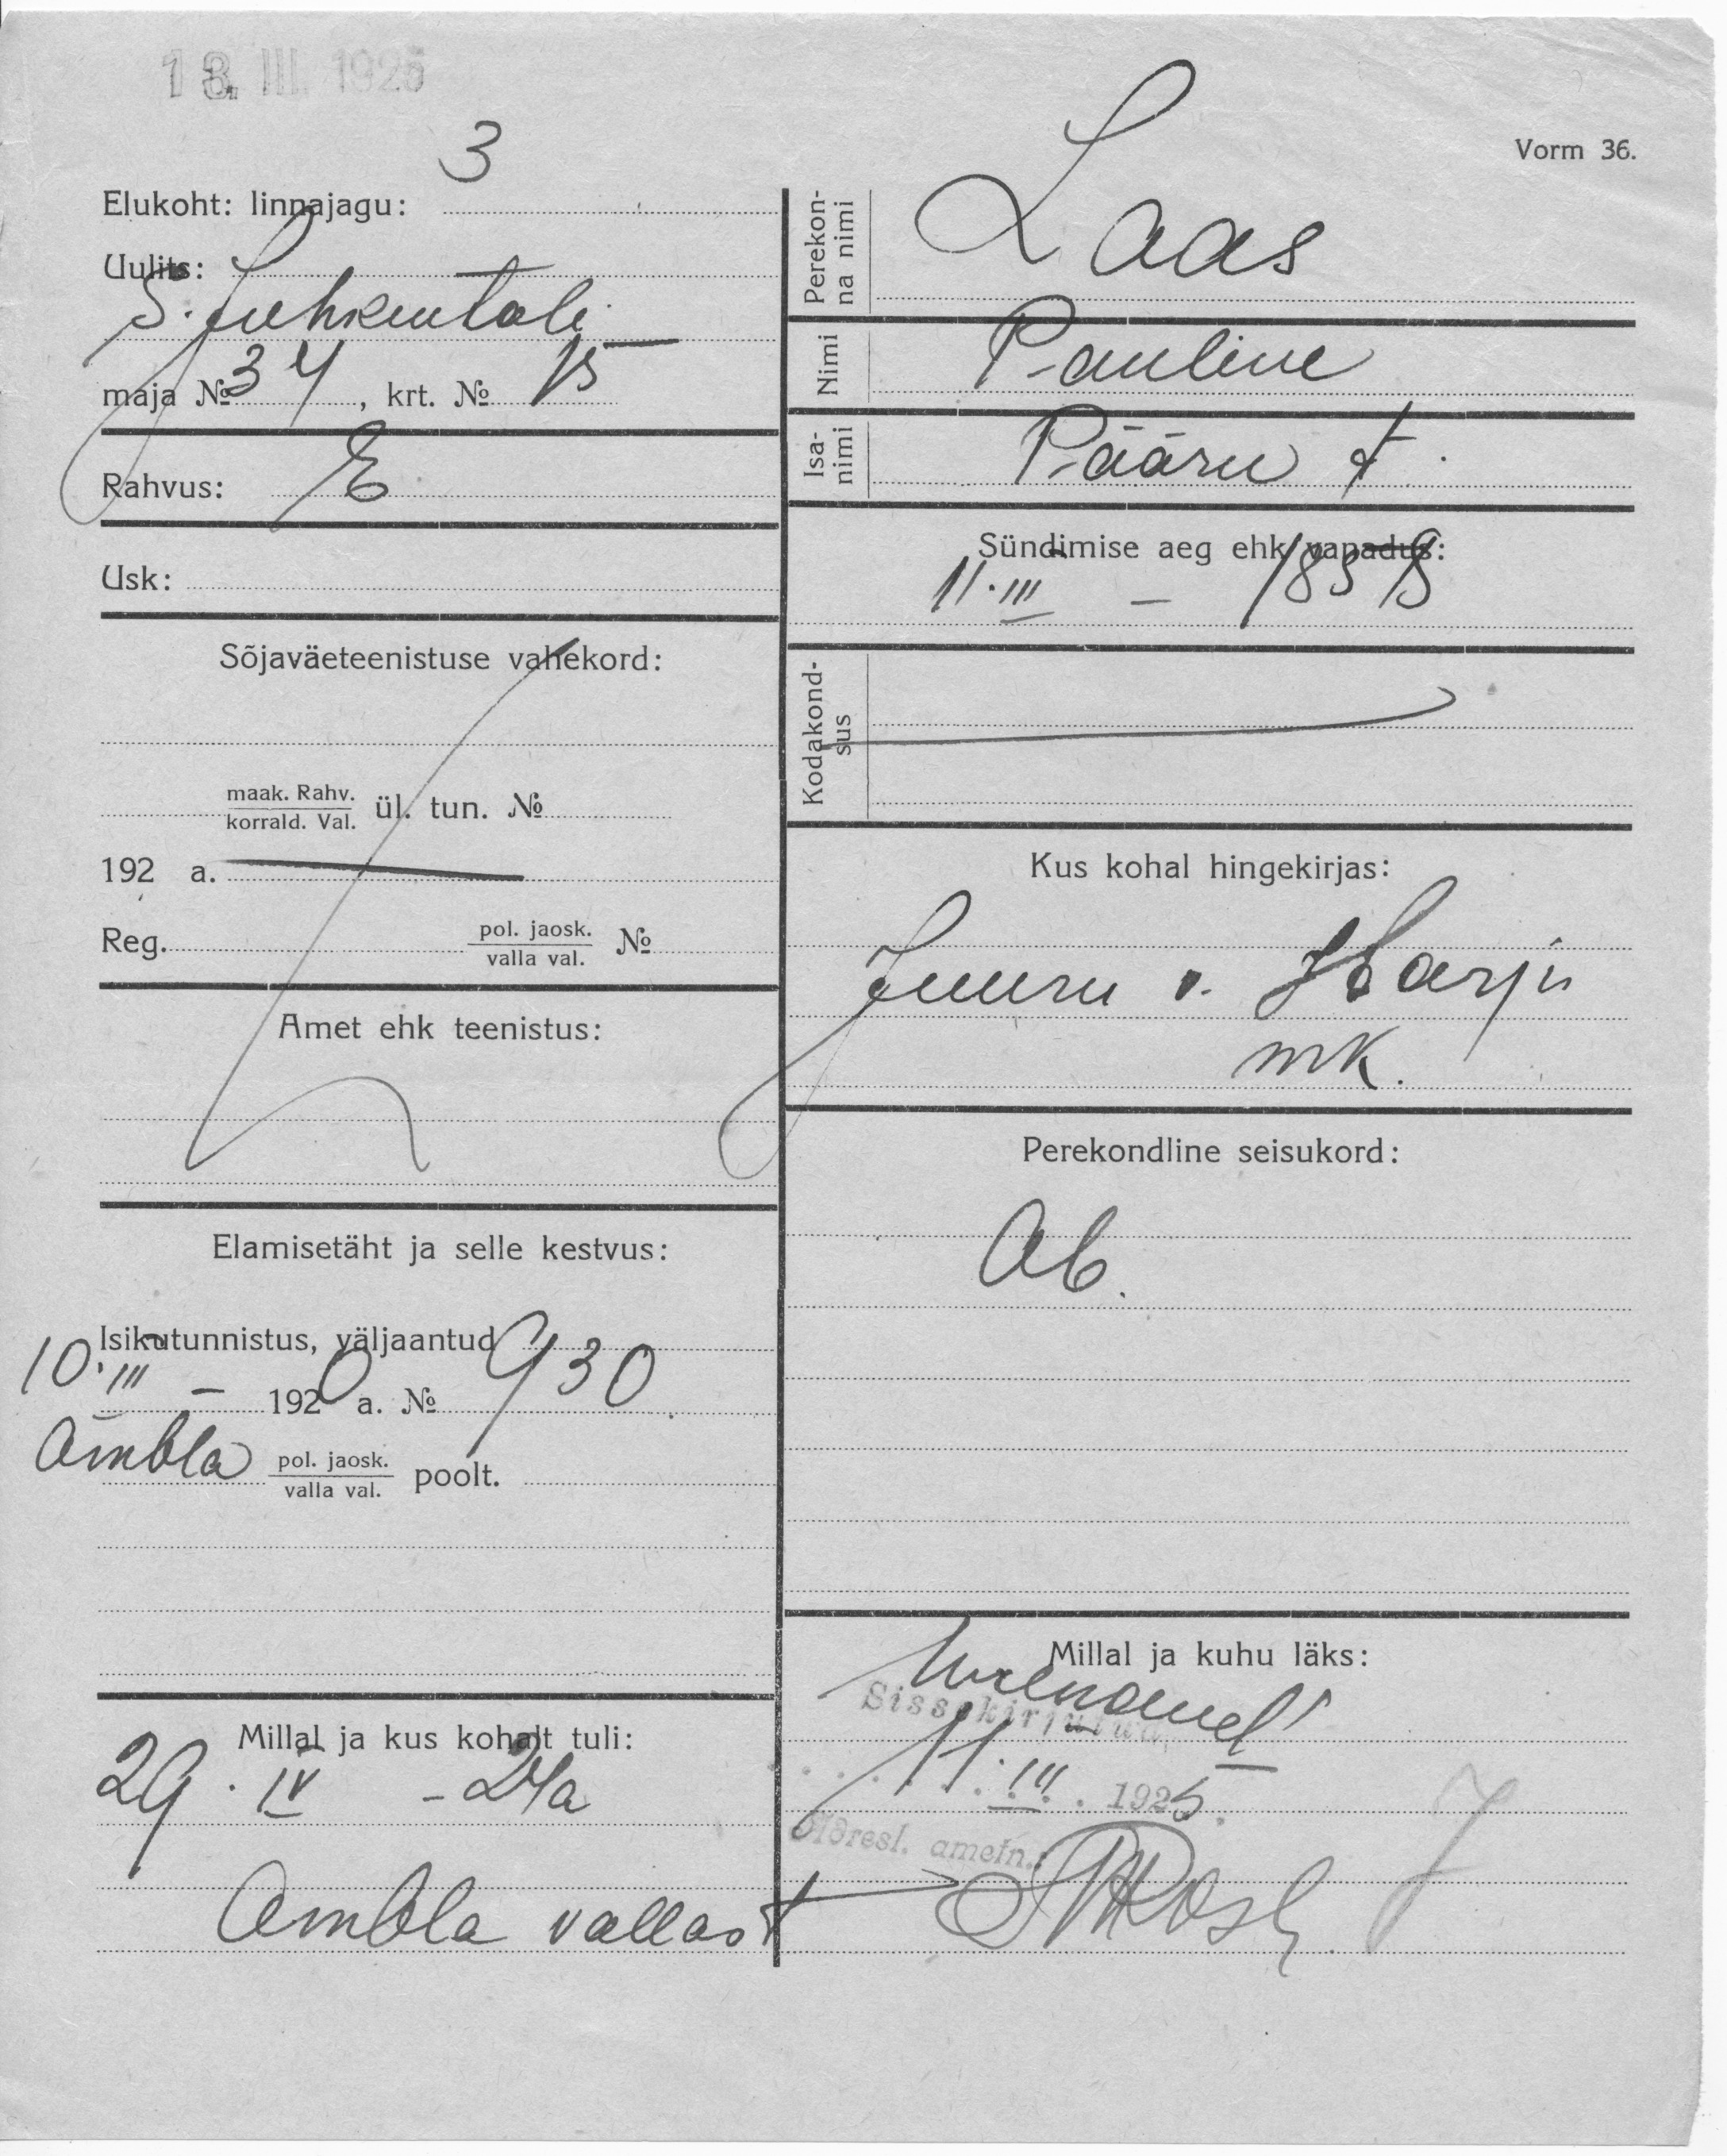 13. III. 1925
Vorm 36.
3
Elukoht: linnajagu:
Uulits:
S. Juhkentali
maja № 34, krt. № 15
Rahvus: E
Usk:
Sõjaväeteenistuse vahekord:
maak. Rahv.
korrald. Val. ül. tun. №
192 a.
Reg. pol. jaosk.
valla val. №
Amet ehk teenistus:
Elamisetäht ja selle kestvus:
Isikutunnistus, väljaantud
10. III – 1920 a. № 930
Ambla pol. jaosk.
valla val. poolt.
Millal ja kus kohalt tuli:
29. IV – 24a
Ambla vallast
Perekon-
na nimi
Laas
Nimi
Pauline
Isa-
nimi
Pääru t.
Sündimise aeg ehk vanadus:
11. III –
Kodakond-
sus
Kus kohal hingekirjas:
Juuru v. Harju
mk.
Perekondline seisukord:
Ab.
Millal ja kuhu läks:
Sissekirjutud,
11. III. 1925.
Adresl. ametn.: